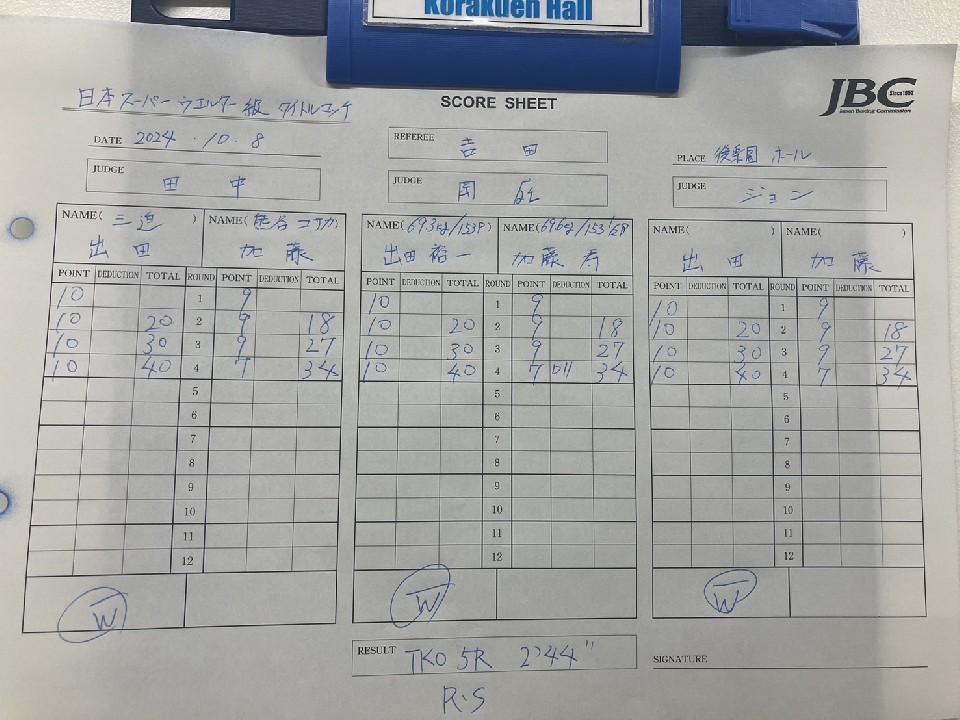 Korakuen Hall
日本スーパーウエルター級 タイトルマッチ
SCORE SHEET
JBC Since1952
Japan Boxing Commission
DATE 2024.10.8
REFEREE 吉田
PLACE 後楽園ホール
JUDGE 田中
JUDGE
JUDGE ジョン
NAME(三迫) NAME( ) NAME(69.3kg/153P) NAME(69.6kg/153 ) NAME( ) NAME( )
出田 加藤 出田裕一 加藤寿 出田 加藤
POINT DEDUCTION TOTAL ROUND POINT DEDUCTION TOTAL POINT DEDUCTION TOTAL ROUND POINT DEDUCTION TOTAL POINT DEDUCTION TOTAL ROUND POINT DEDUCTION TOTAL
10 1 9 10 1 9 10 1 9
10 20 2 9 18 10 20 2 9 18 10 20 2 9 18
10 30 3 9 27 10 30 3 9 27 10 30 3 9 27
10 40 4 7 34 10 40 4 7 34 10 40 4 7 34
5 5 5
6 6 6
7 7 7
8 8 8
9 9 9
10 10 10
11 11 11
12 12 12
W W W
RESULT TKO 5R 2'44"
SIGNATURE
R.S